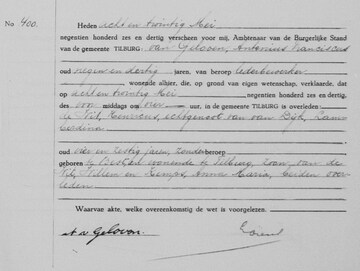 No 400. Heden acht en twintig Mei
negentien honderd zes en dertig verscheen voor mij, Ambtenaar van de Burgerlijke Stand
van de gemeente TILBURG: van Geloven, Antonius Franciscus
oud negen en dertig jaren, van beroep lederbewerker
wonende alhier, die, op grond van eigen wetenschap, verklaarde, dat
op acht en twintig Mei negentien honderd zes en dertig,
des voor middags om vier uur, in de gemeente TILBURG is overleden
de Wit, echtgenoot van van Dijk,
oud en zestig jaren, zonder beroep
geboren te Boxtel wonende te Tilburg, zoon van de
Wit, Willem en Anna Maria, beiden over-
leden.
Waarvan akte, welke overeenkomstig de wet is voorgelezen.
A v Geloven.